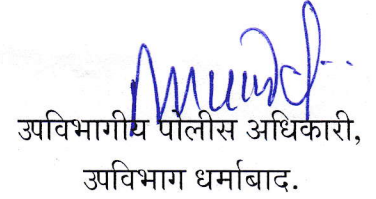 उपविभागीय पोलीस अधिकारी,
उपविभाग धर्माबाद.